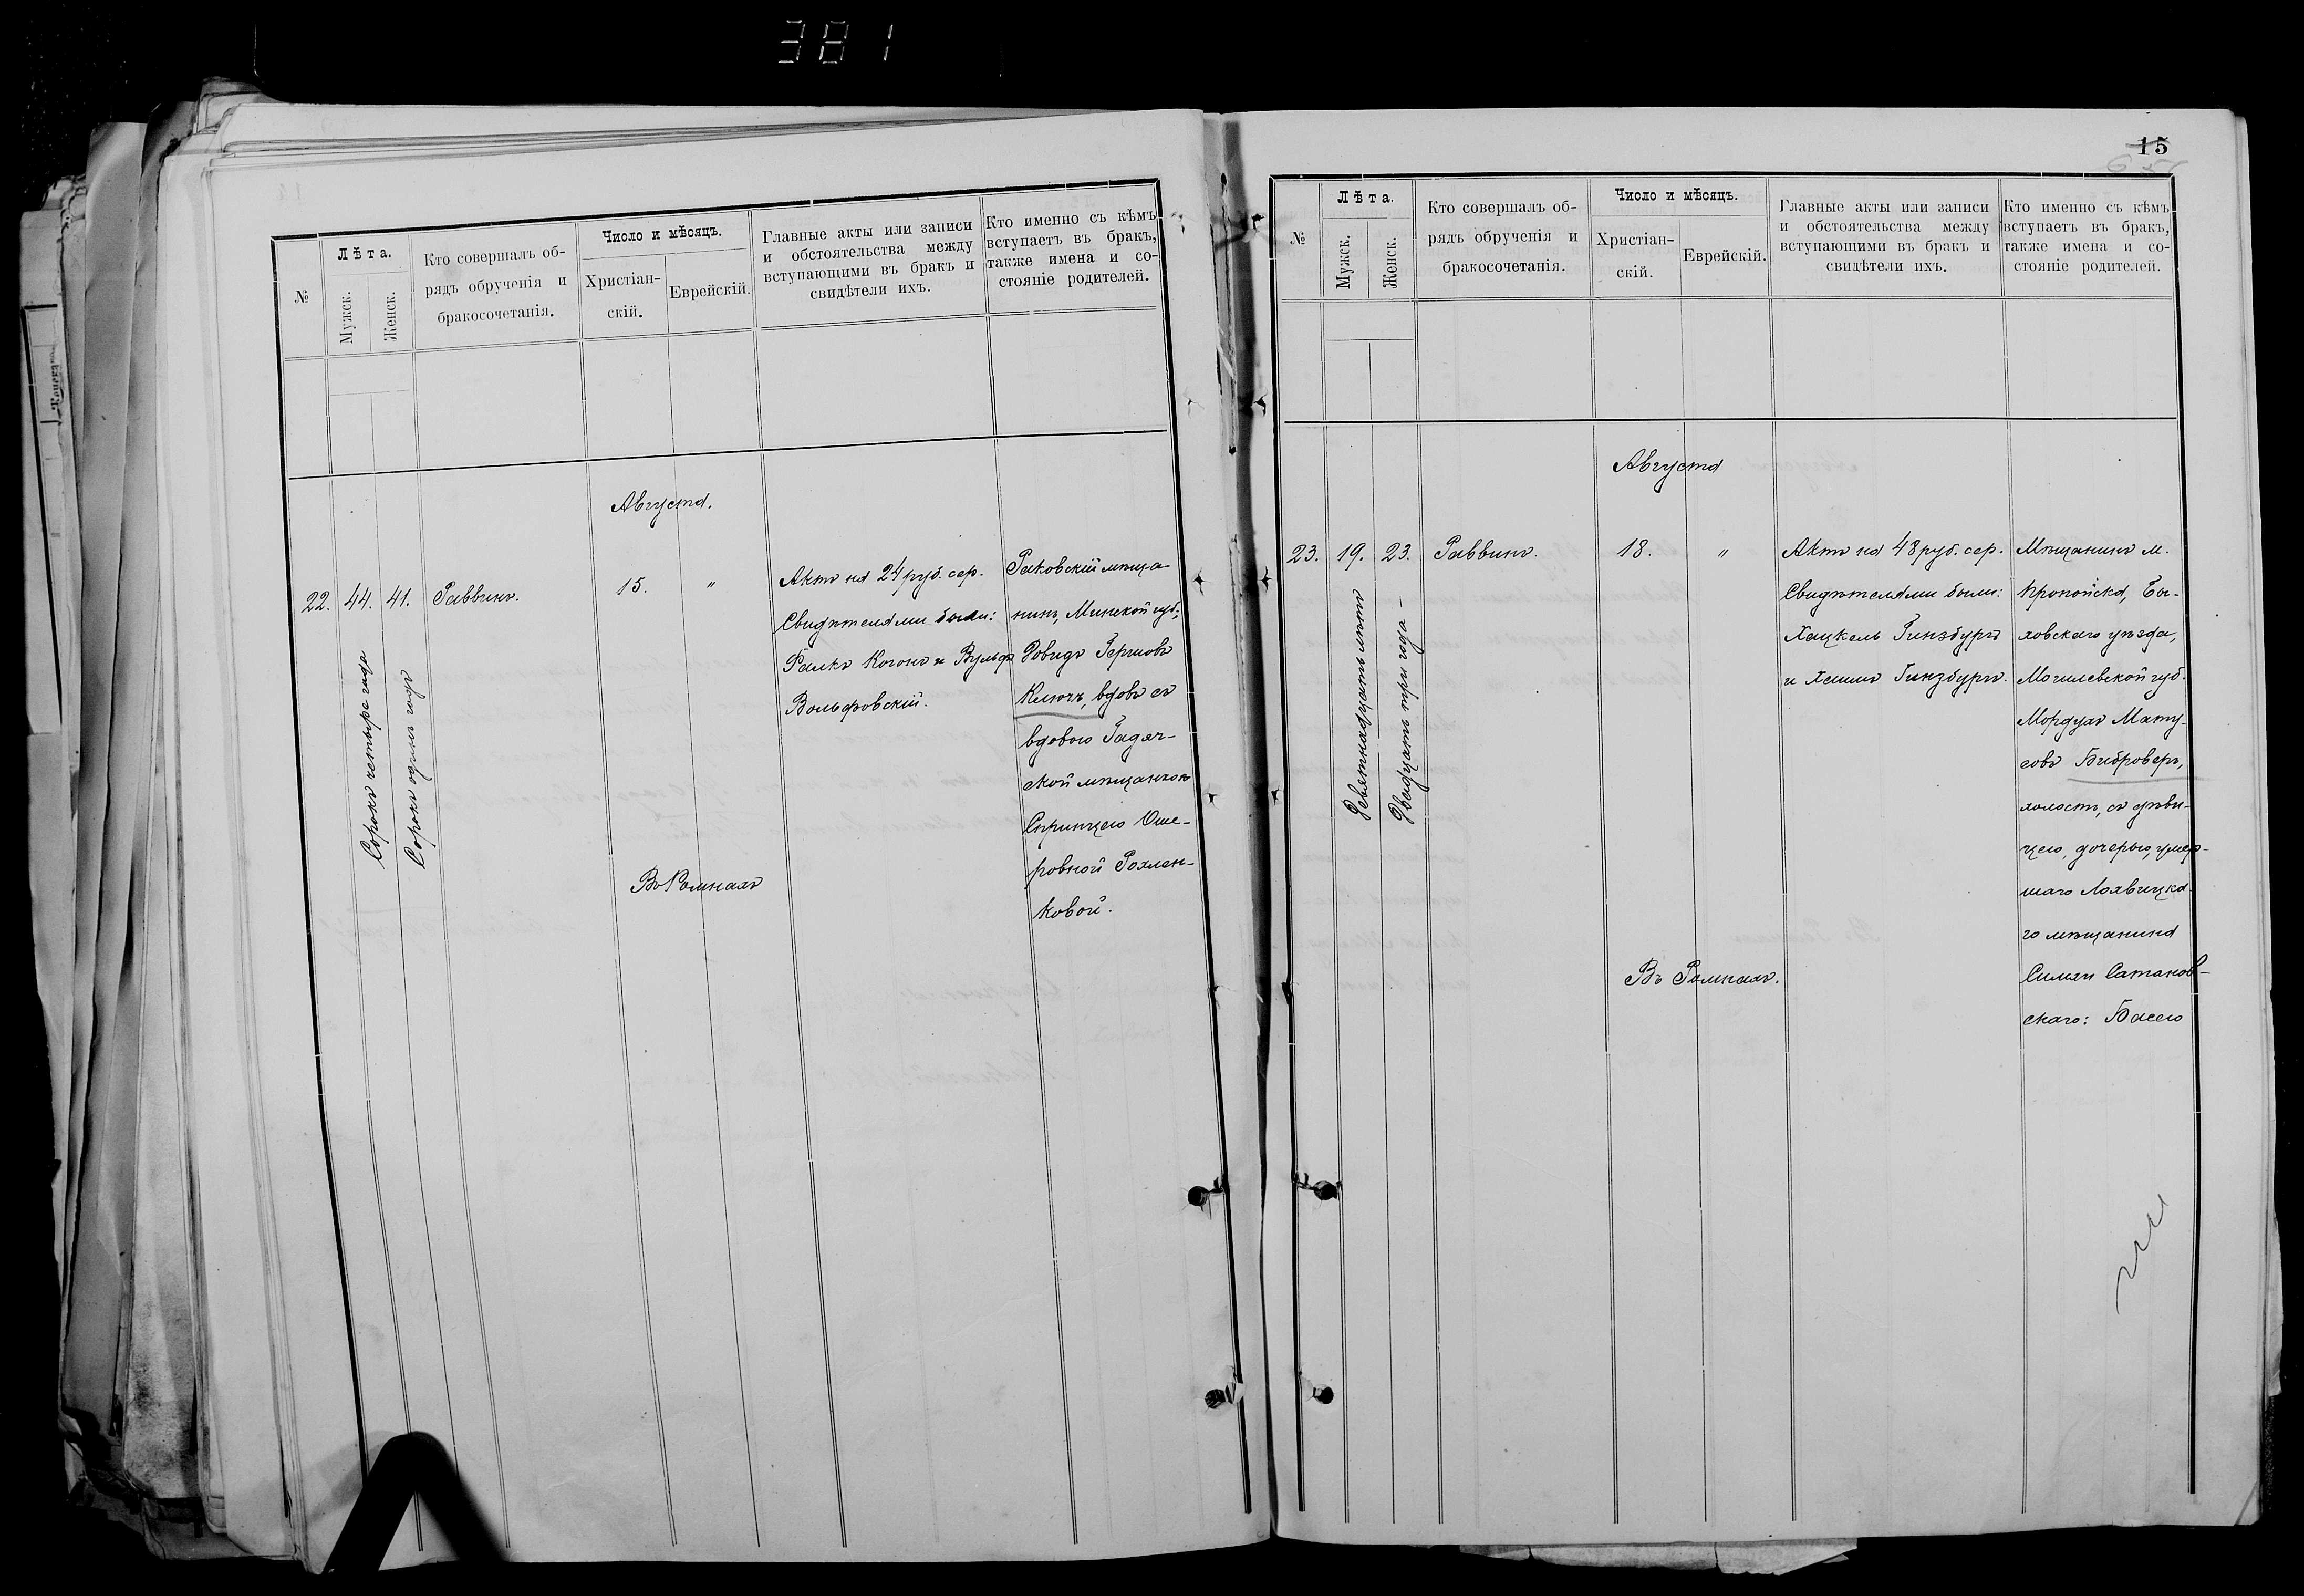 381
№
Лѣта.
Мужск.
Женск.
Кто совершалъ об-
рядъ обрученія и
бракосочетанія.
Число и мѣсяцъ.
Христіан-
скій.
Еврейскій.
Главные акты или записи
и обстоятельства между
вступающими въ бракъ и
свидѣтели ихъ.
Кто именно съ кѣмъ
вступаетъ въ бракъ,
также имена и со-
стояніе родителей.
Августа.
22. 44. 41. Раввинъ. 15. "
Сорокъ четыре года
Сорокъ одинъ годъ
Въ Ромнахъ
Актъ на 24 руб. сер.
Свидѣтелями были:
Фалкъ Коганъ и Вульфъ
Вольфовскій.
Раковскій мѣща-
нинъ, Минской губ.,
Довидъ Гершовъ
Ключъ, вдовъ съ
вдовою Гадяч-
ской мѣщанкою
Спринцею Оше-
ровной Рохлен-
ковой.
15
№
Лѣта.
Мужск.
Женск.
Кто совершалъ об-
рядъ обрученія и
бракосочетанія.
Число и мѣсяцъ.
Христіан-
скій.
Еврейскій.
Главные акты или записи
и обстоятельства между
вступающими въ бракъ и
свидѣтели ихъ.
Кто именно съ кѣмъ
вступаетъ въ бракъ,
также имена и со-
стояніе родителей.
Августа
23. 19. 23. Раввинъ. 18. "
Девятнадцать лѣтъ
Двадцать три года –
Въ Ромнахъ.
Актъ на 48 руб. сер.
Свидѣтелями были:
Хацкель Гинзбургъ
и Хаимъ Гинзбургъ.
Мѣщанинъ м.
Пропойска, Бы-
ховскаго уѣзда,
Могилевской губ.
Мордухъ Мату-
совъ Биброверъ,
холостъ, съ дѣви-
цею, дочерью, умер-
шаго Лохвицка-
го мѣщанина
Симхи Сатанов-
скаго: Басею